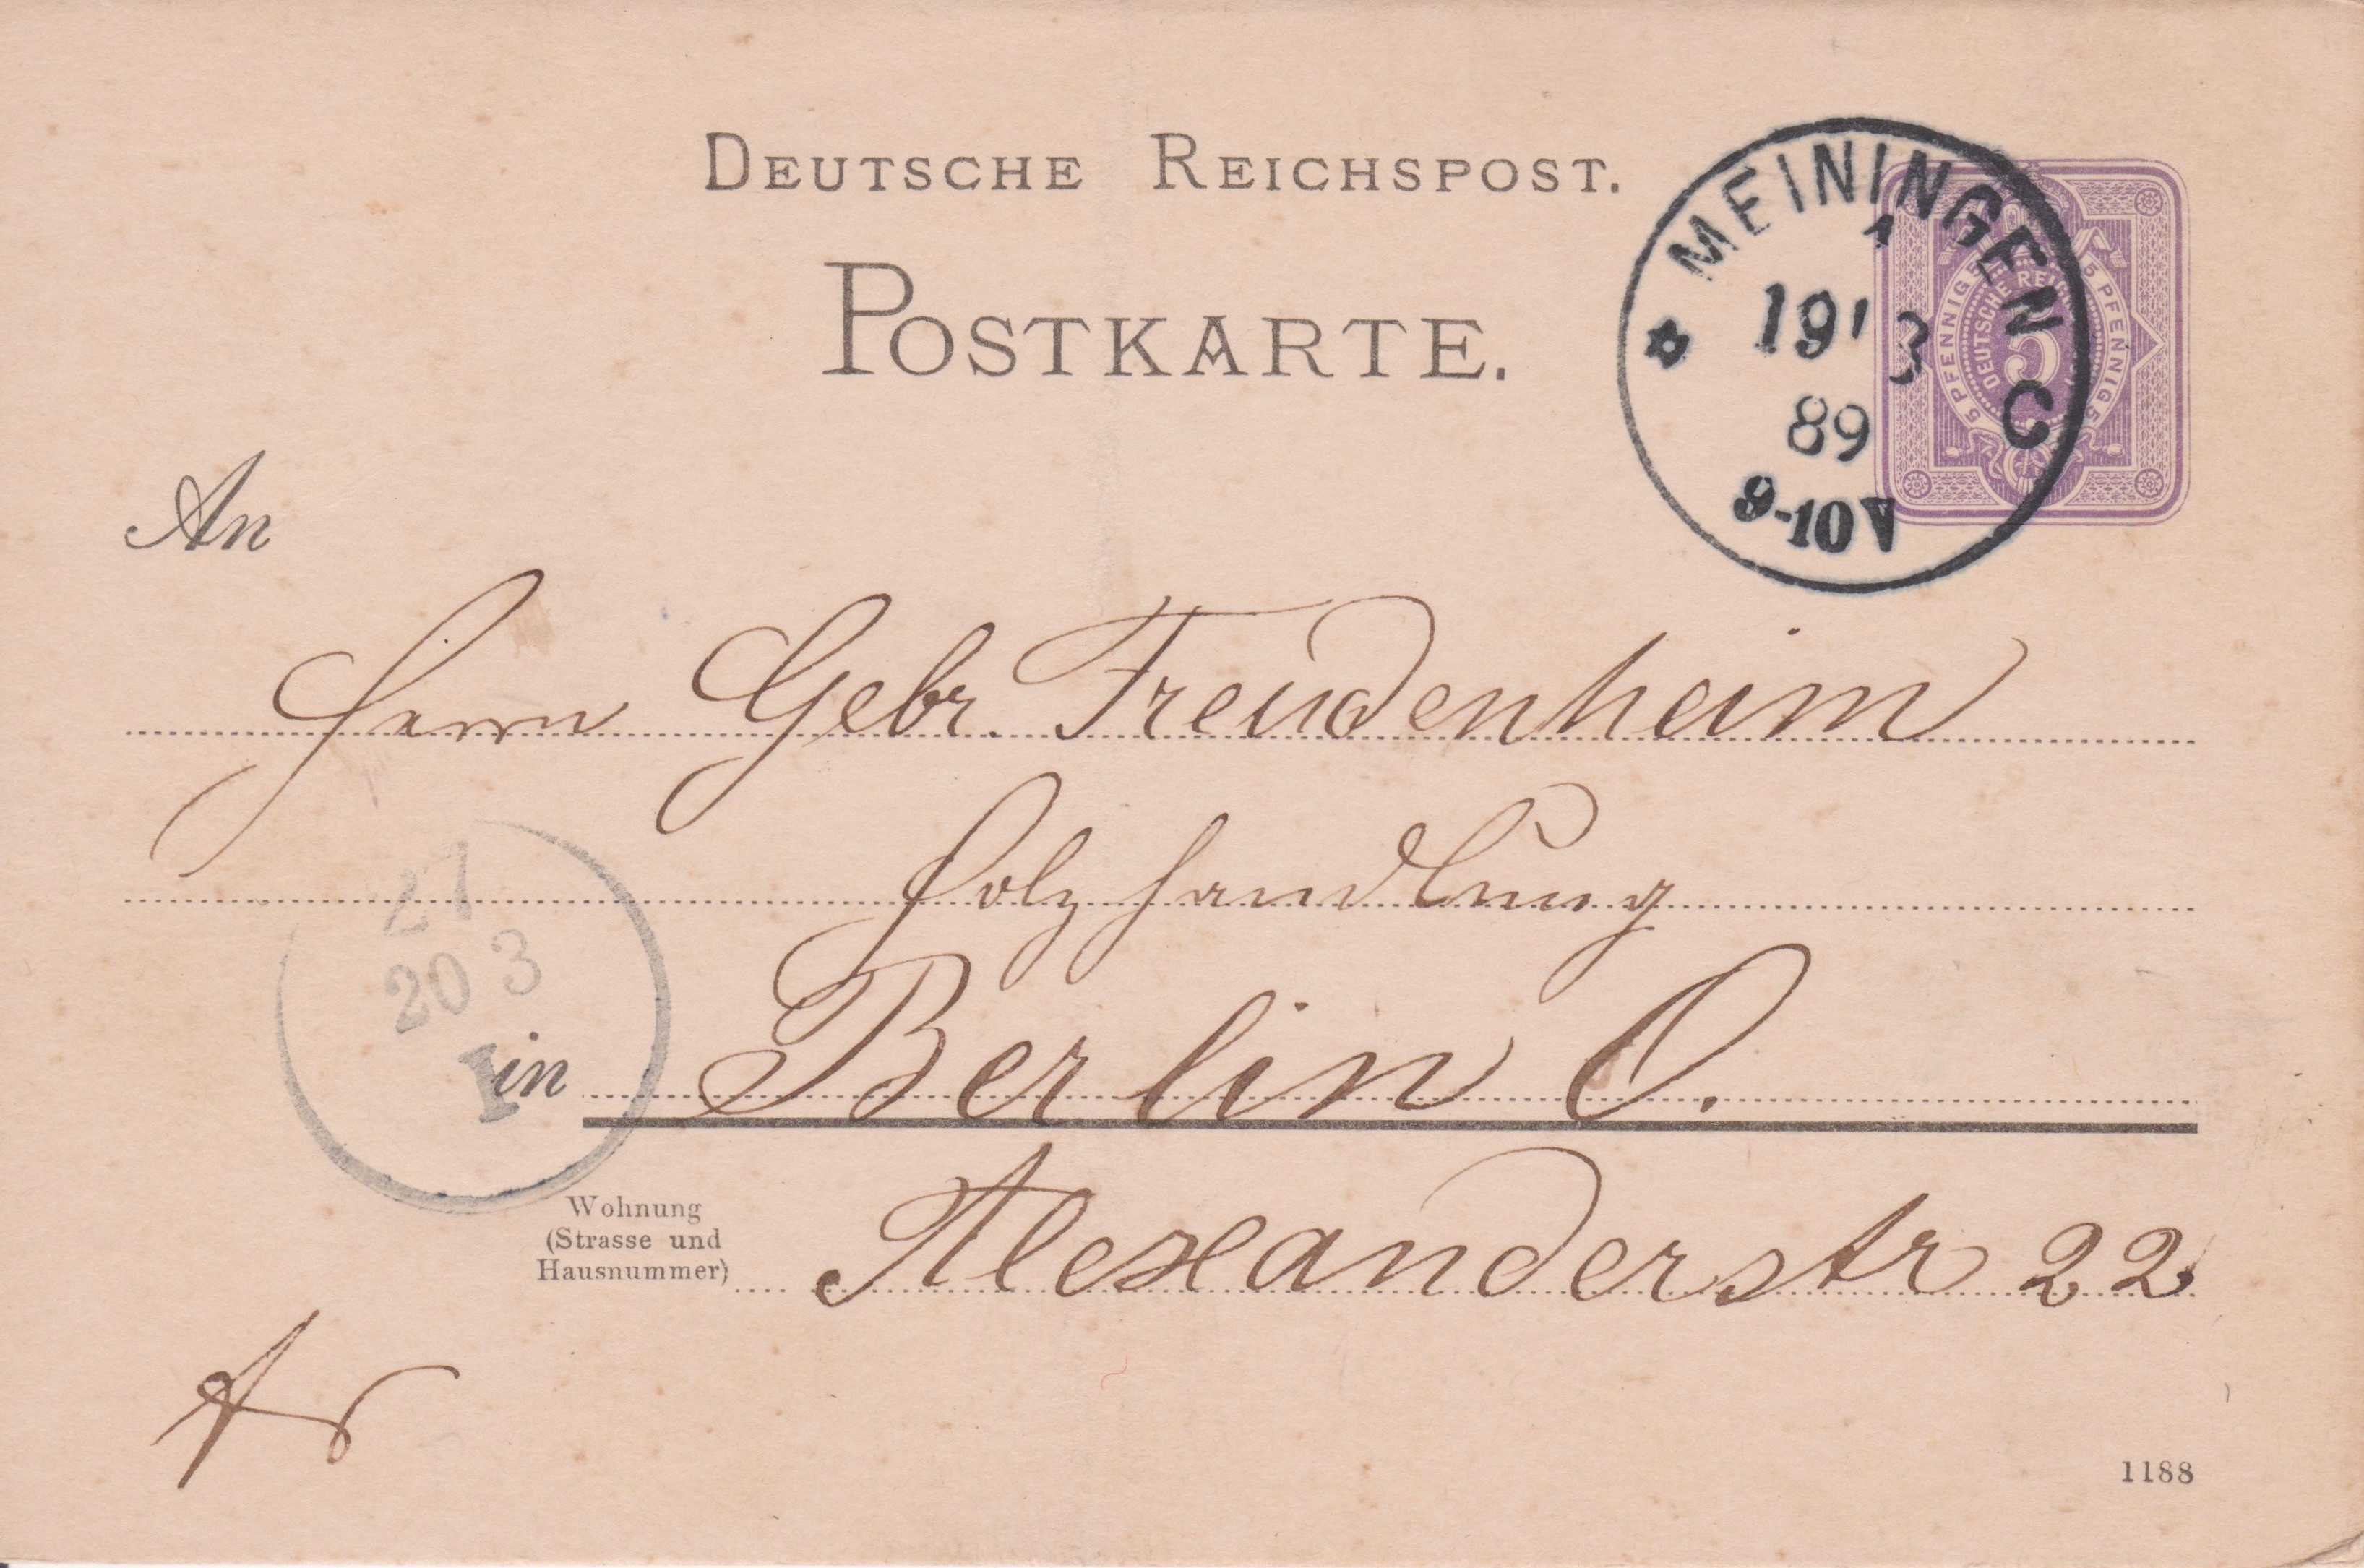 DEUTSCHE REICHSPOST.
POSTKARTE.
MEININGEN C
1
19 3
89
9-10V
5 PFENNIG 5 PFENNIG 5
DEUTSCHE REICHSPOST
5
An
Herrn Gebr. Freudenheim
Holzhandlung
27
20 3
I
in Berlin O.
Wohnung
(Strasse und
Hausnummer)
Alexanderstr 22
1188